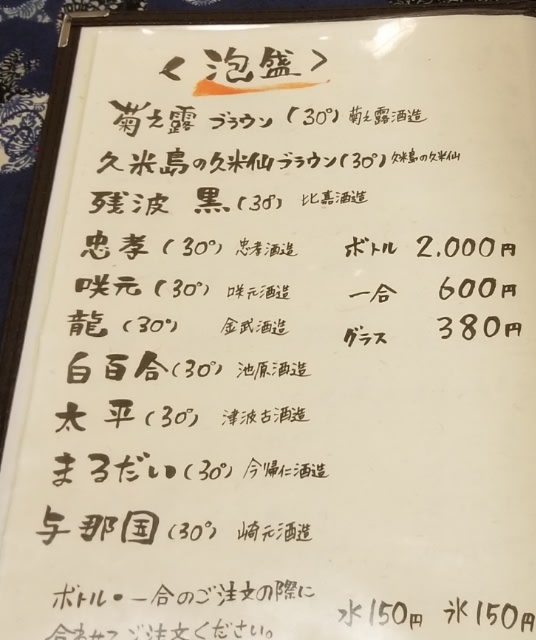 〈泡盛〉
菊之露 ブラウン (30°) 菊之露酒造
久米島の久米仙ブラウン(30°) 久米島の久米仙
残波 黒 (30°) 比嘉酒造
忠孝 (30°) 忠孝酒造 ボトル 2.000円
咲元 (30°) 咲元酒造 一合 600円
龍 (30°) 金武酒造 グラス 380円
白百合 (30°) 池原酒造
太平 (30°) 津波古酒造
まるだい (30°) 今帰仁酒造
与那国 (30°) 崎元酒造
ボトル・一合のご注文の際に
合わせてご注文ください。 水150円 氷150円